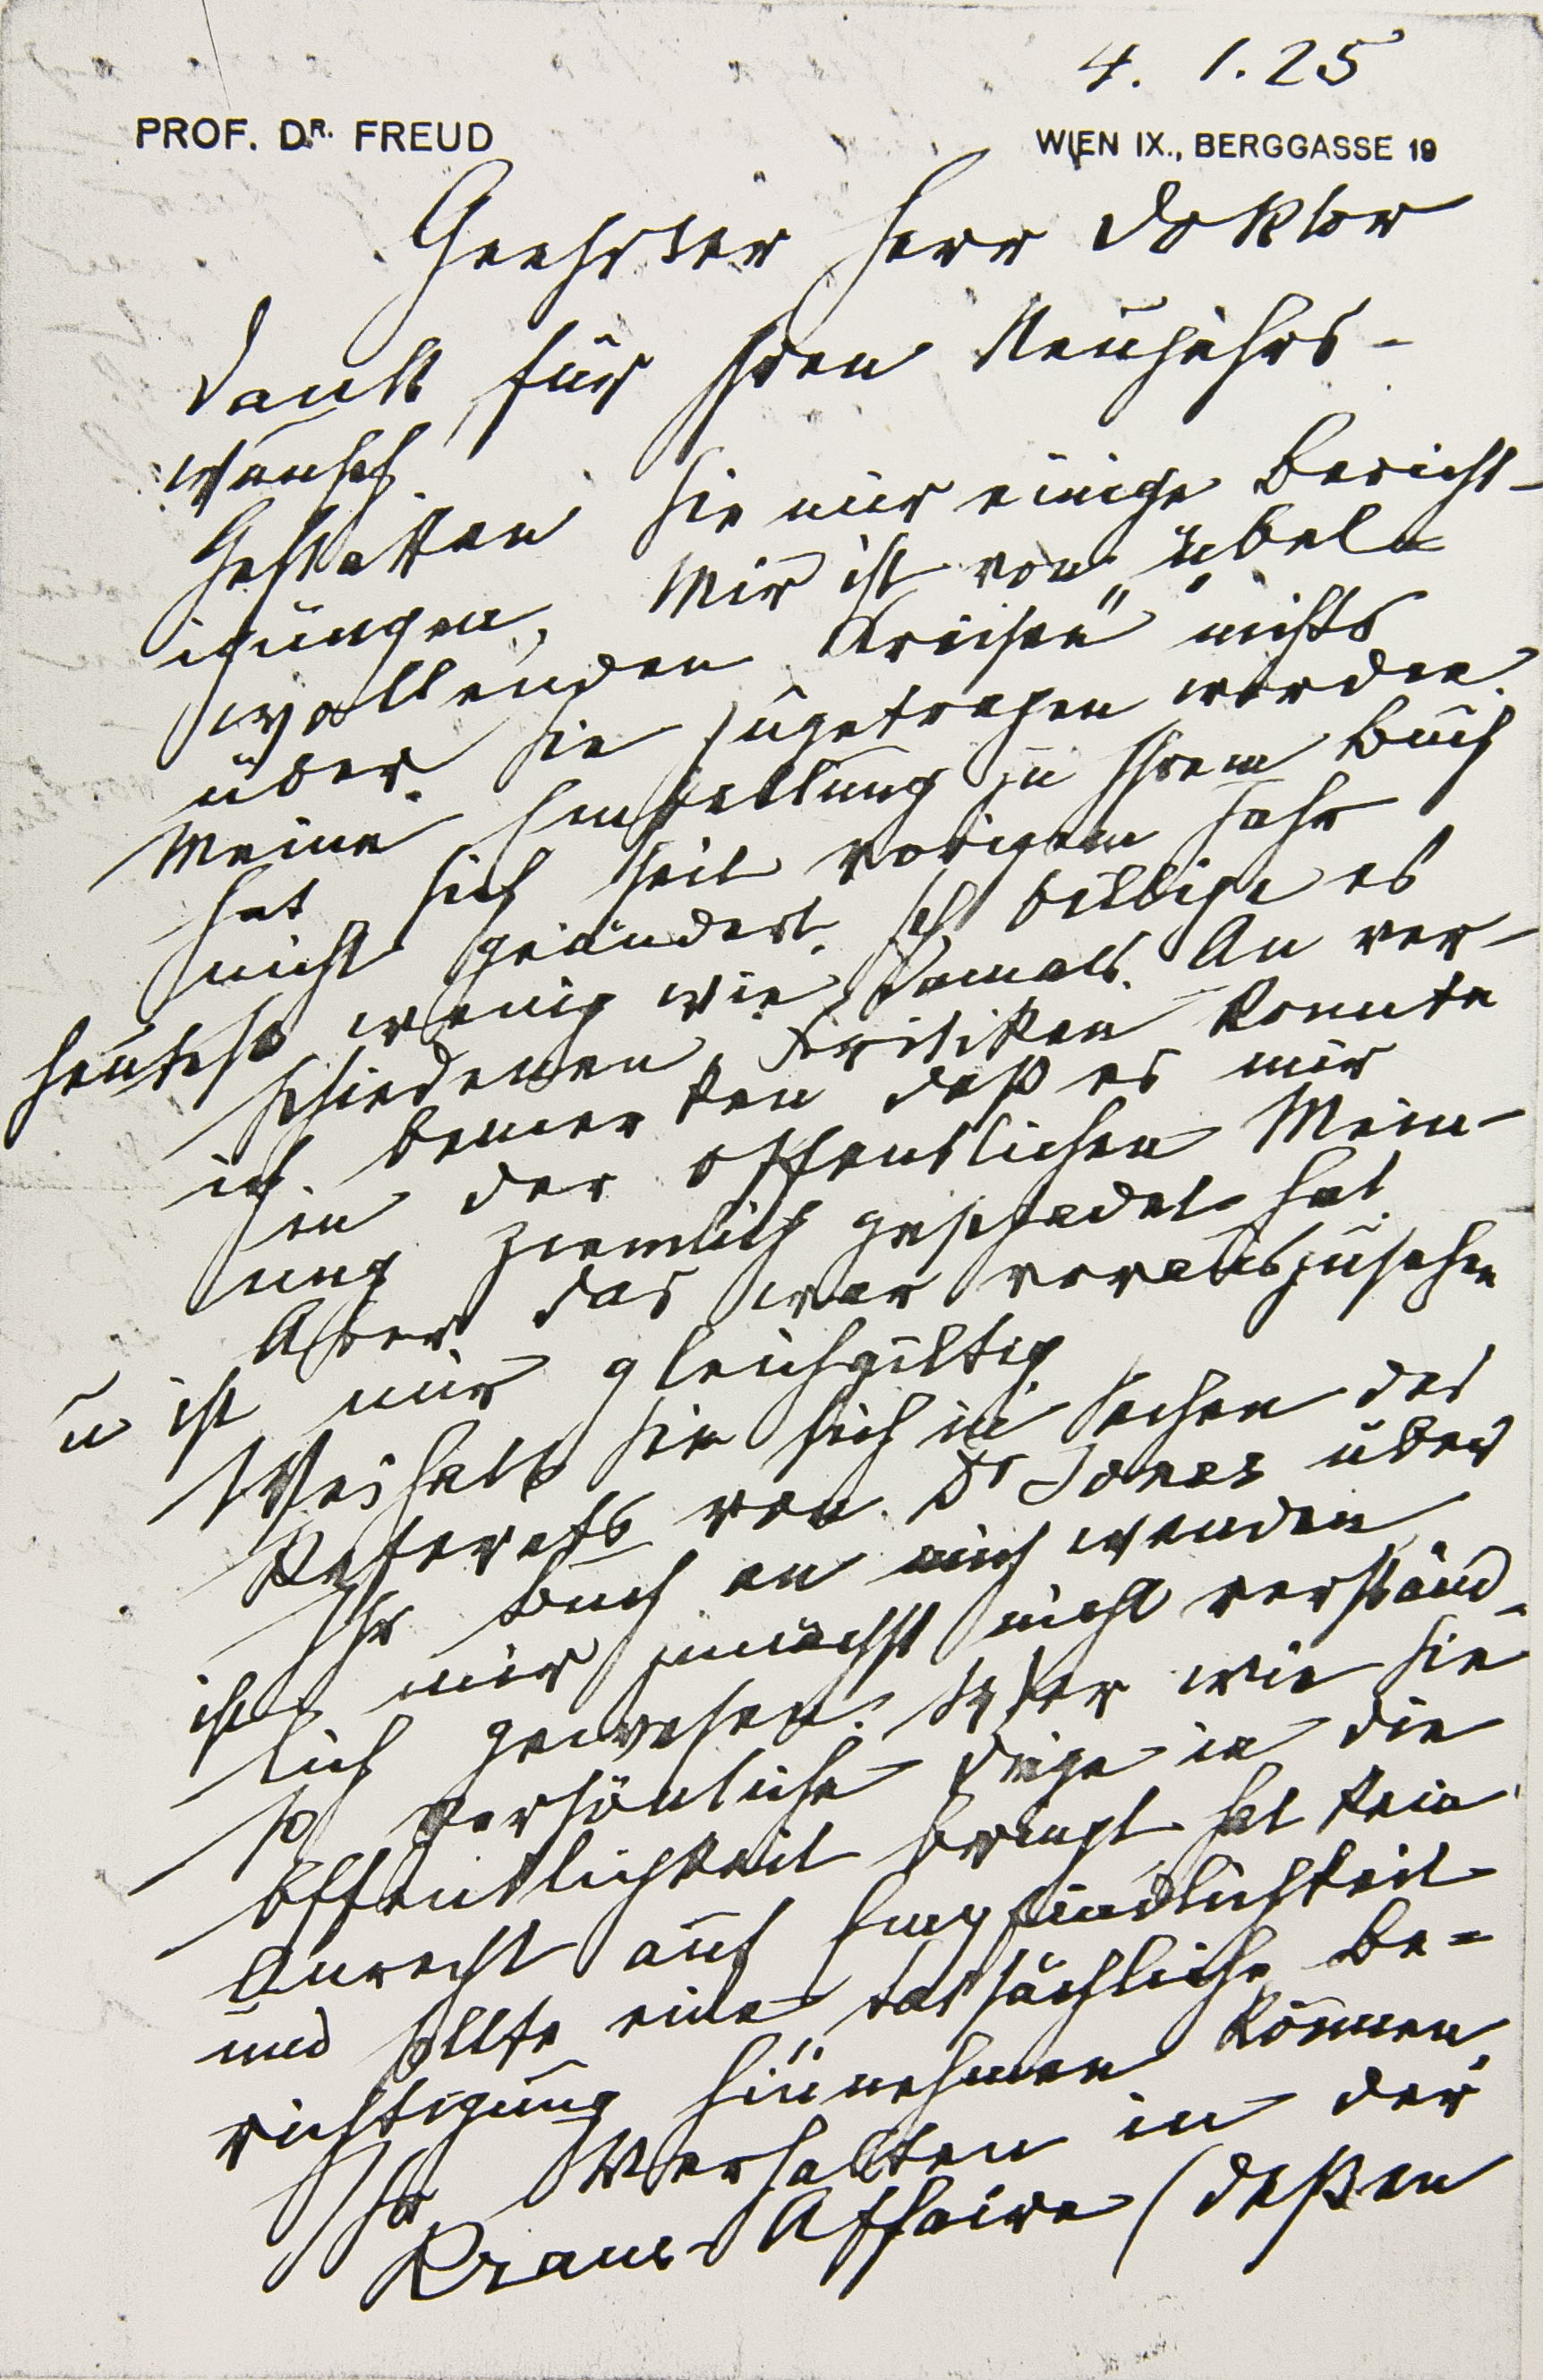 4. 1. 25
PROF. DR. FREUD
WIEN IX., BERGGASSE 19
Geehrter Herr Doktor
Dank für Ihren Neujahrs-
wunsch.
Gestatten Sie mir einige Bericht-
igungen. Mir ist von „übel-
wollenden Kreisen" nichts
über Sie zugetragen worden.
Meine Einstellung zu Ihrem Buch
hat sich seit vorigem Jahr
nicht geändert. Ich billige es
heute so wenig wie damals. An ver-
schiedenen Kritiken konnte
ich bemerken daß es mir
in der öffentlichen Mein-
ung ziemlich geschadet hat.
Aber das war vorauszusehen
u ist mir gleichgiltig
Weshalb Sie sich in Sachen des
Referats von Dr Jones über
Ihr Buch an mich wenden,
ist mir zunächst nicht verständ-
lich gewesen. Wer wie Sie
so persönliche Dinge in die
Öffentlichkeit bringt hat kein
Anrecht auf Empfindlichkeit
und sollte eine tatsächliche Be-
richtigung hinnehmen können.
Ihr Verhalten in der
Kraus-Affaire (dessen